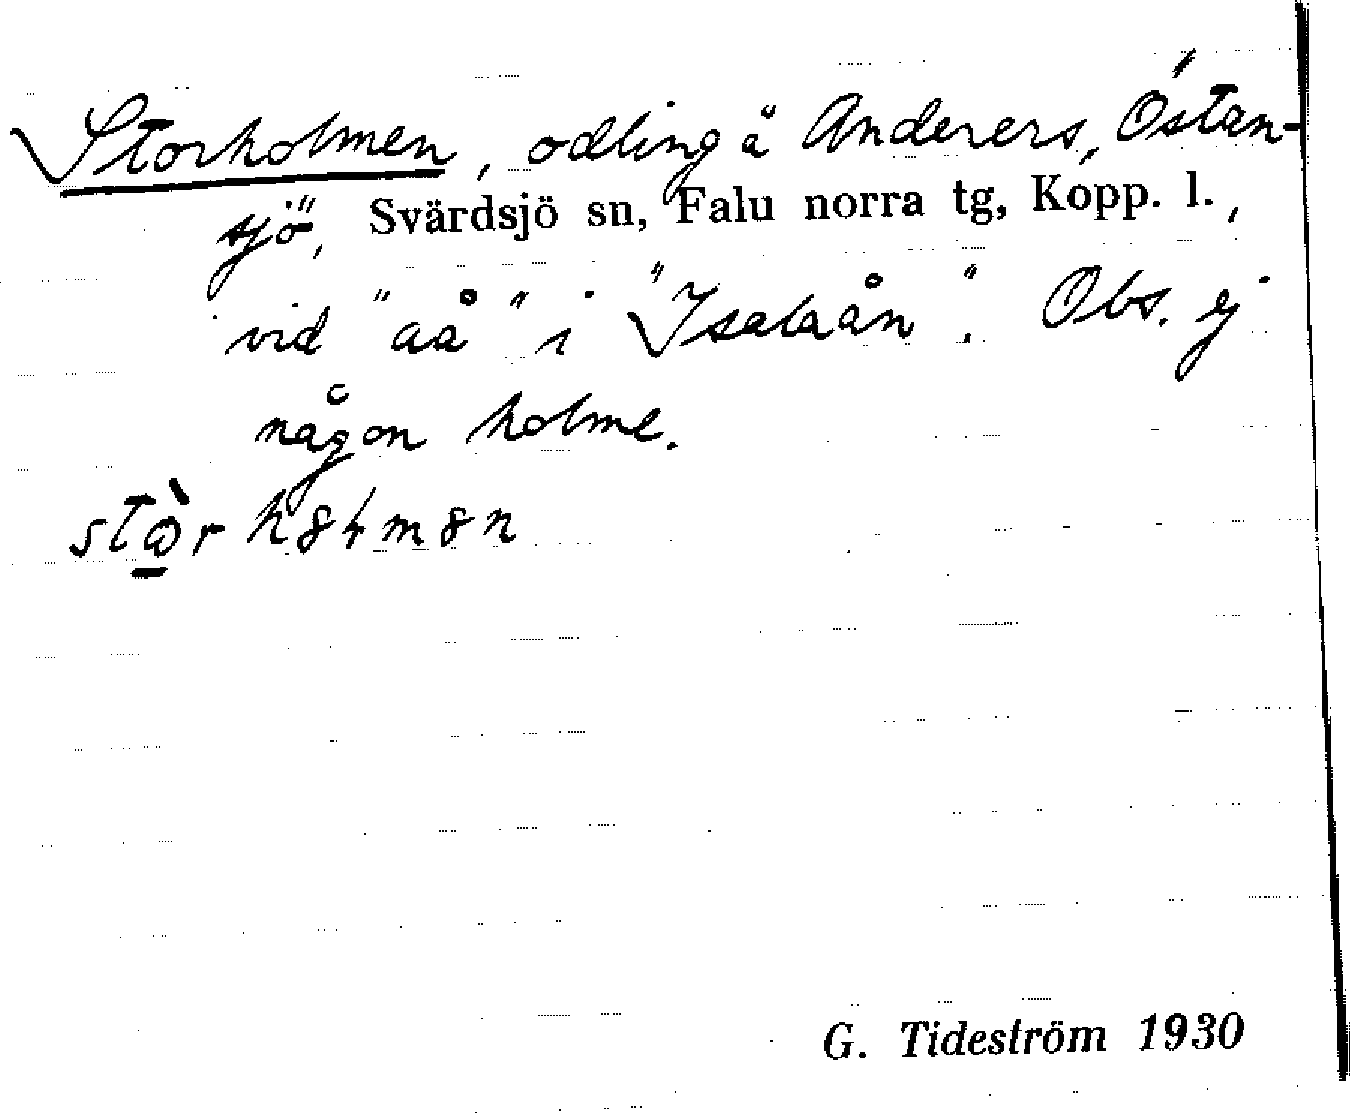 Storholmen, odling å Anderers, Östan-
sjö, Svärdsjö sn, Falu norra tg, Kopp. l.,
vid "aå" i "Isalaån". Obs. ej
någon holme.
G. Tideström 1930